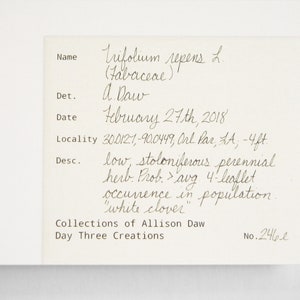 Name Trifolium repens L
(Fabaceae)
Det. A. Daw
Date February 27th, 2018
Locality 30.0127,-90.0449, Orl. Par., LA, -4ft
Desc. low, stoloniferous perennial
herb. Prob. > avg 4-leaflet
occurrence in population.
"white clover"
Collections of Allison Daw
Day Three Creations No. 246.e